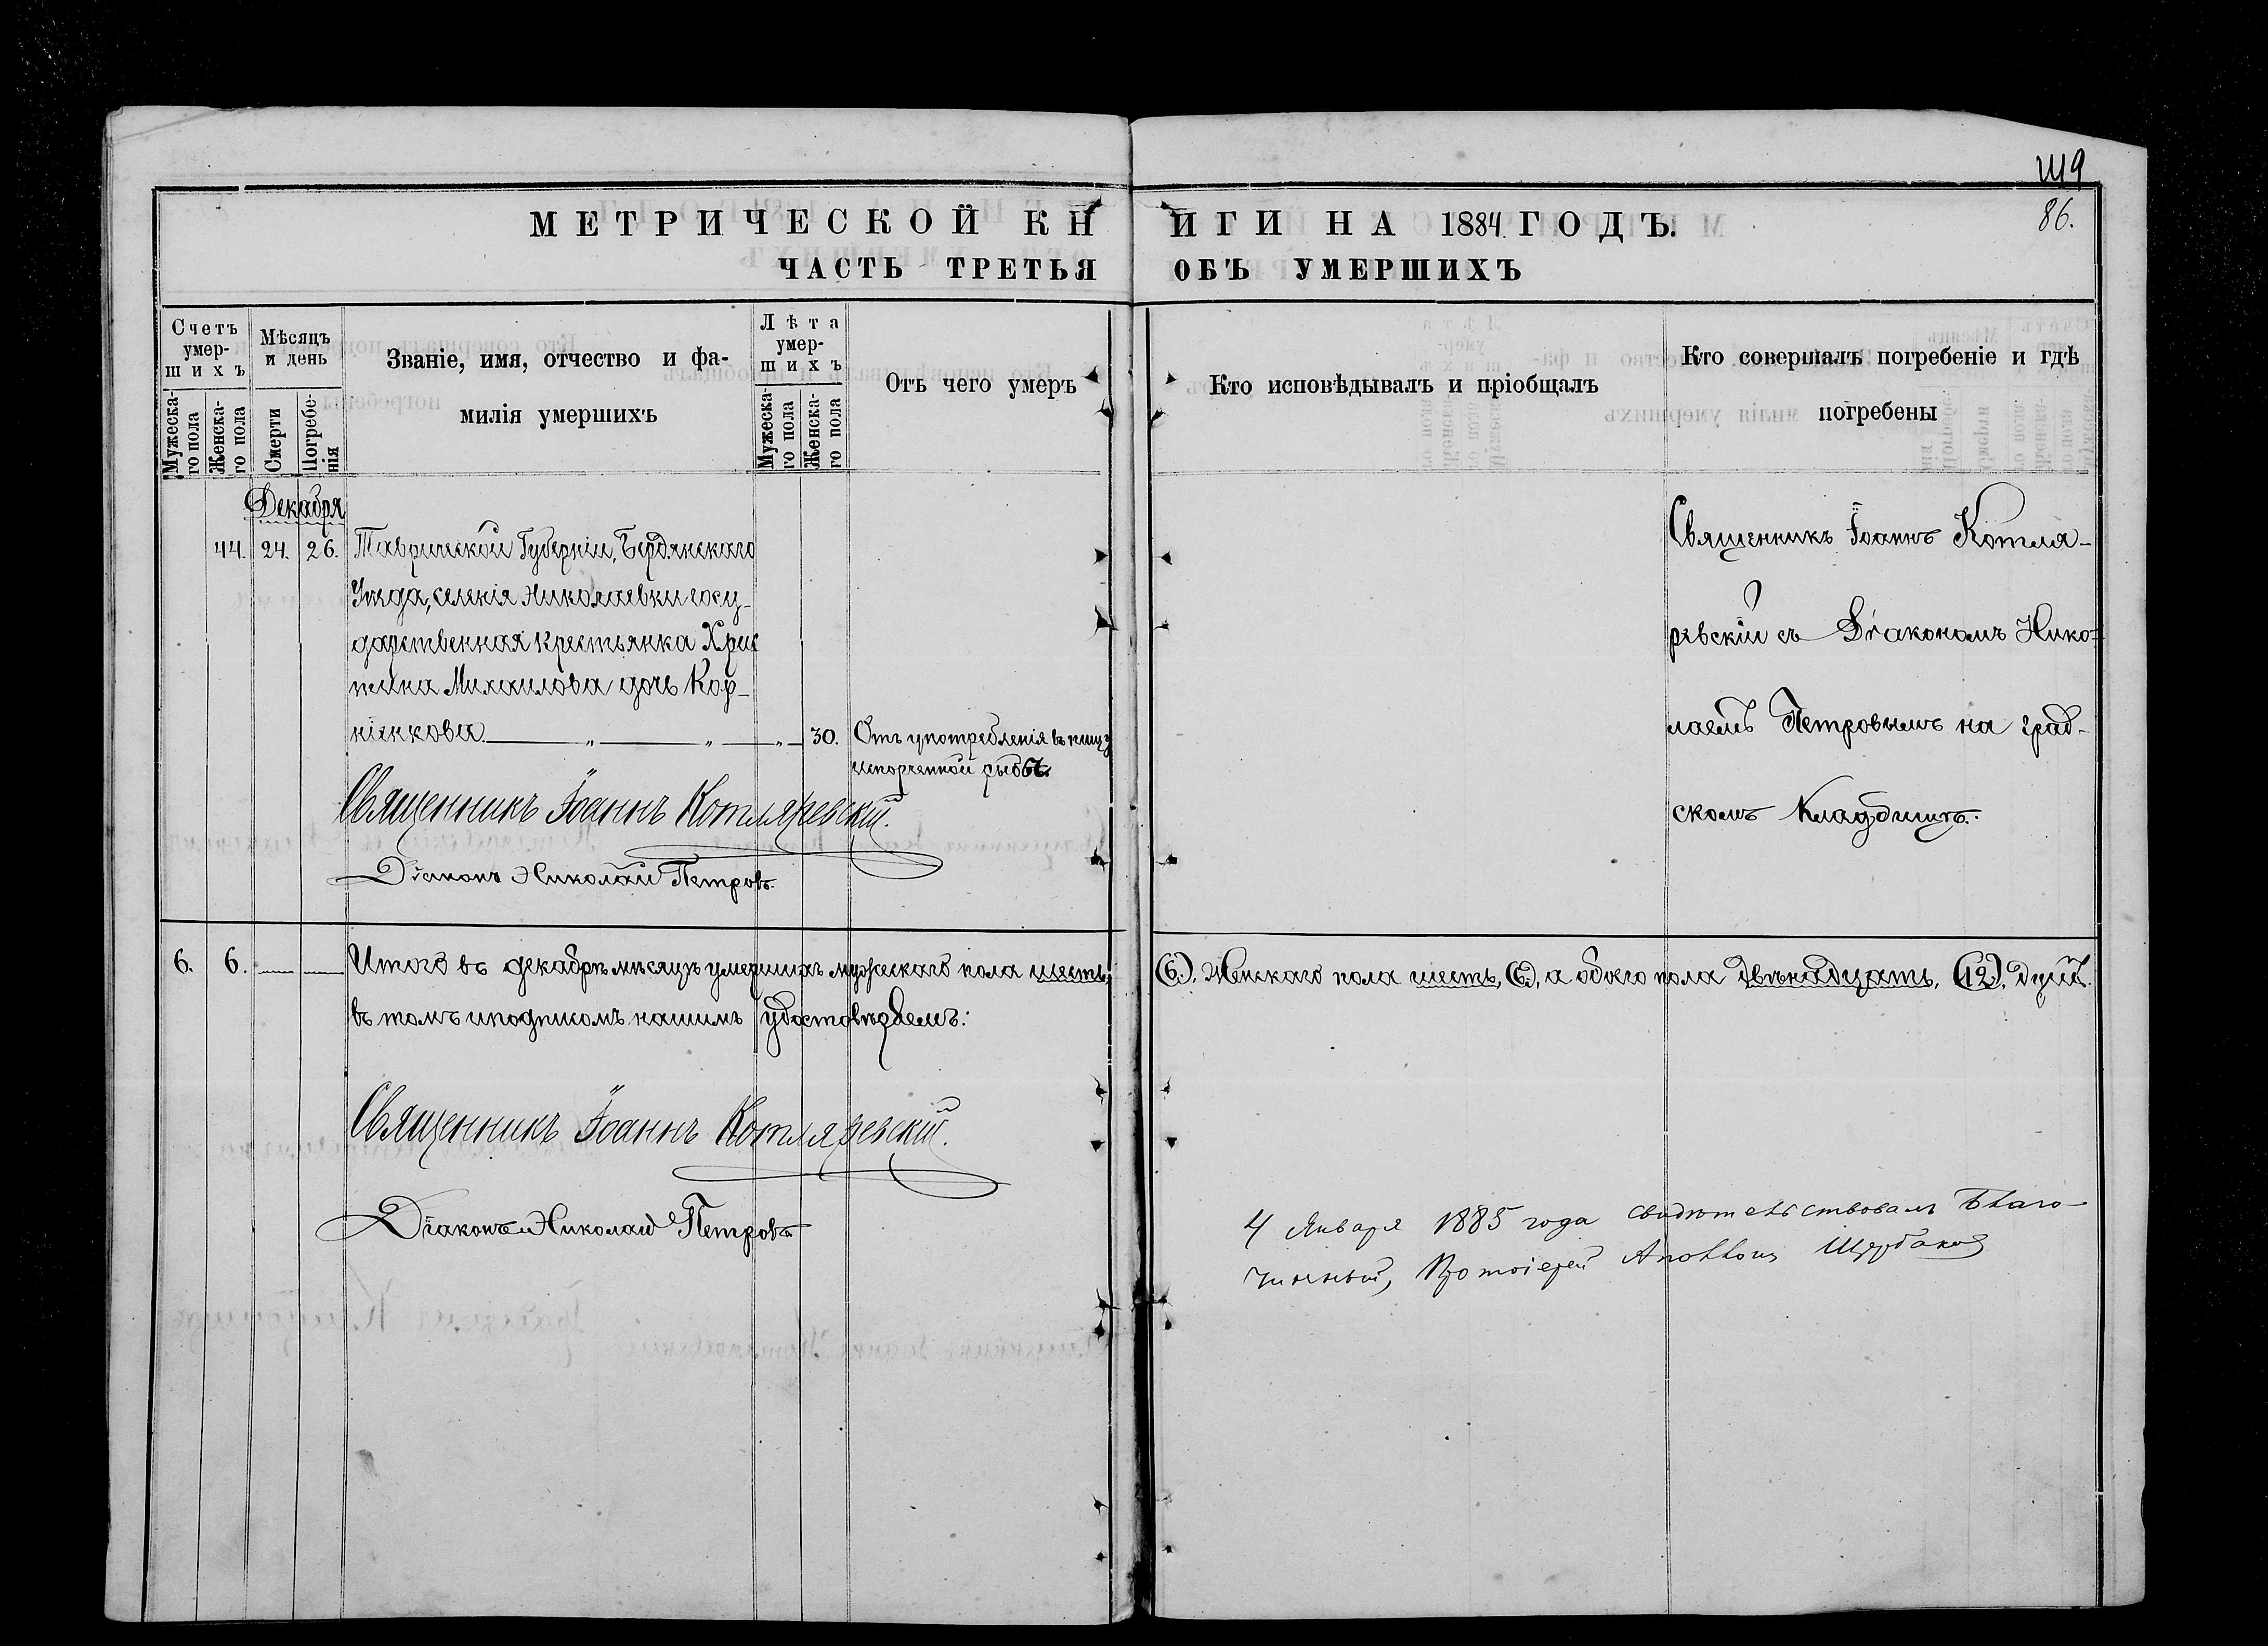 1119
86.
МЕТРИЧЕСКОЙ КНИГИ НА 1884 ГОДЪ.
ЧАСТЬ ТРЕТЬЯ ОБЪ УМЕРШИХЪ
Счетъ умершихъ
Мужескаго пола
Женскаго пола
Мѣсяцъ и день
Смерти
Погребенія
Званіе, имя, отчество и фамилія умершихъ
Лѣта умершихъ
Мужескаго пола
Женскаго пола
Отъ чего умеръ
Кто исповѣдывалъ и пріобщалъ
Кто совершалъ погребеніе и гдѣ погребены
Декабря
44. 24. 26. Таврической Губерніи, Бердянскаго
Уѣзда, селенія Николаевки госу-
дарственная крестьянка Хрис
тина Михаилова дочь Кор-
ніенкова 30. Отъ употребленія въ пищу
испорченной рыбы.
Священникъ Іоаннъ Котляревскій.
Діаконъ Николай Петровъ.
Священникъ Іоаннъ Котля-
ревскій съ Діакономъ Нико-
лаемъ Петровымъ на град-
скомъ Кладбищѣ.
6. 6. Итого въ декабрѣ мѣсяцѣ умершихъ мужескаго пола шесть, (6.), Женскаго пола шесть, (6.), а обоего пола двѣнадцать, (12.), душъ.
въ томъ и подписомъ нашимъ удостовѣряемъ:
Священникъ Іоаннъ Котляревскій.
Діаконъ Николай Петровъ.
4 Января 1885 года свидѣтельствовалъ Благо-
чинный, Протоіерей Аполлонъ Щербаковъ